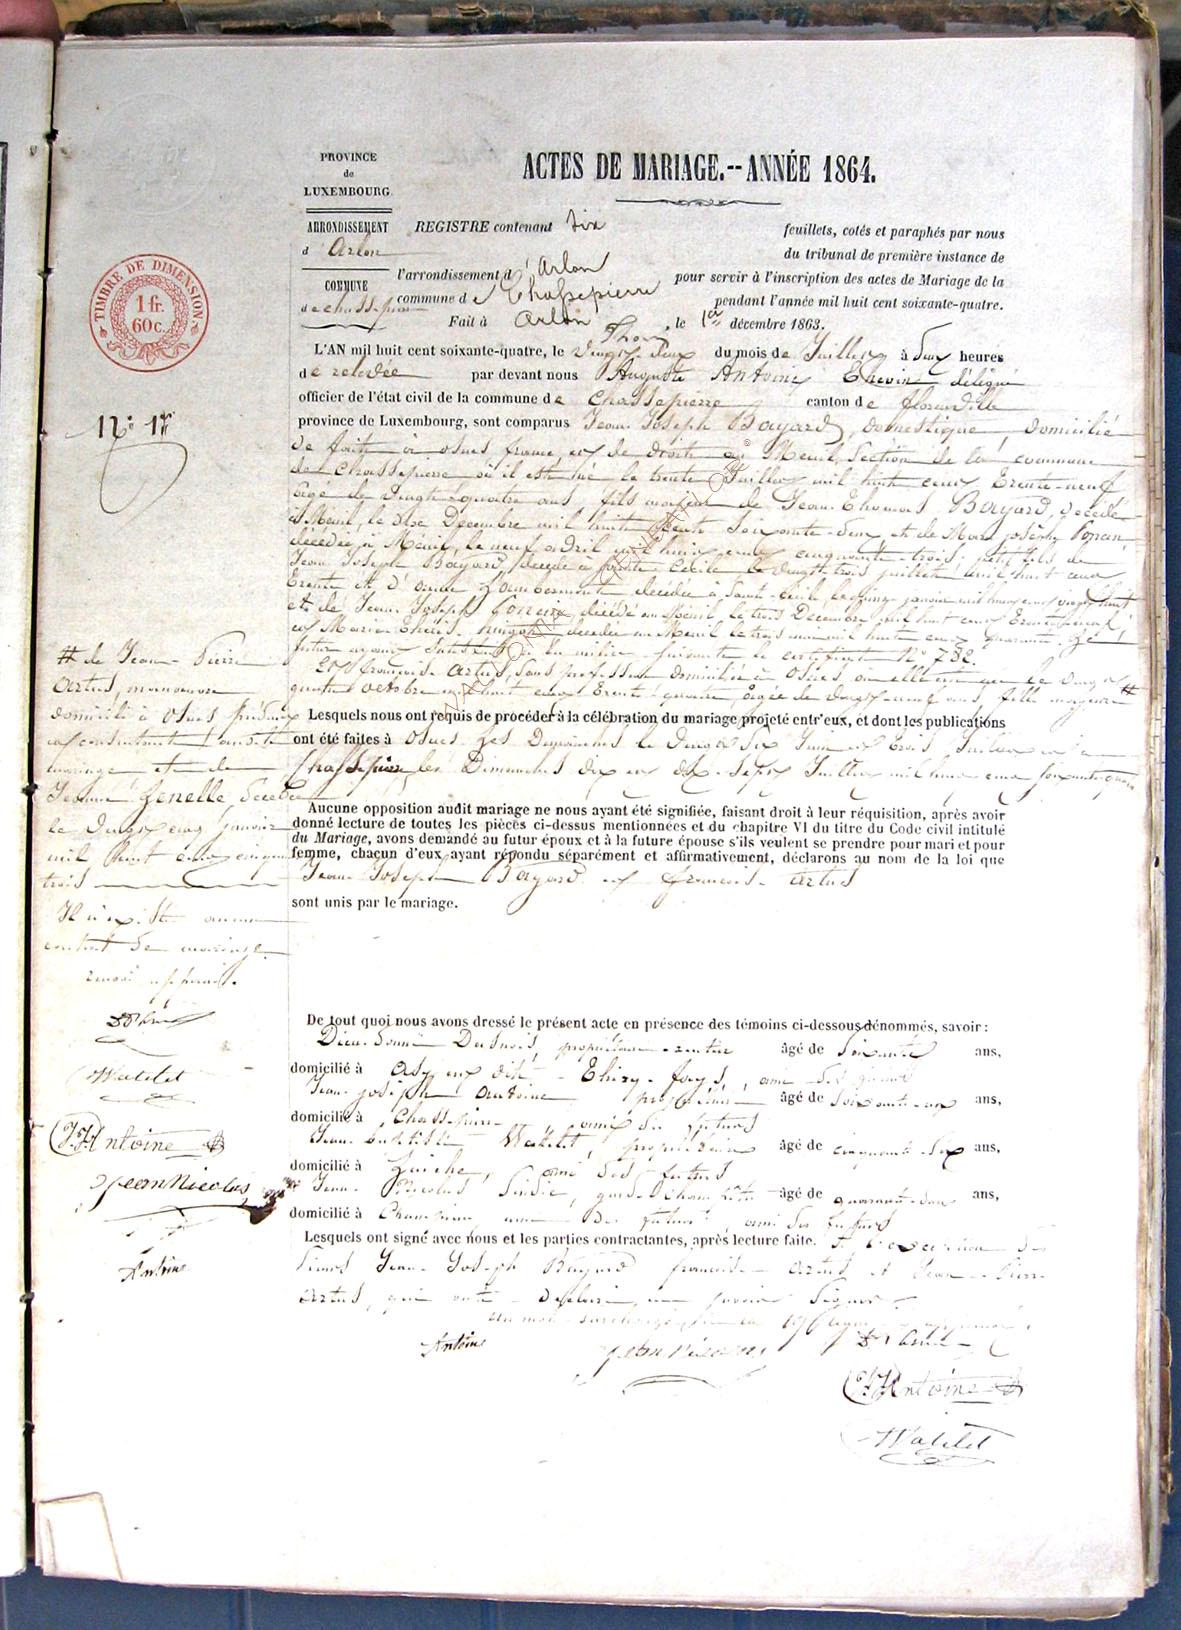 PROVINCE
de
LUXEMBOURG.
ACTES DE MARIAGE.--ANNÉE 1864.
ARRONDISSEMENT
d'Arlon
COMMUNE
de chassepierre
TIMBRE DE DIMENSION
1 fr.
60c.
REGISTRE contenant six feuillets, cotés et paraphés par nous
du tribunal de première instance de
l'arrondissement d'Arlon pour servir à l'inscription des actes de Mariage de la
commune de Chassepierre pendant l'année mil huit cent soixante-quatre.
Fait à Arlon, le 1er décembre 1863.
L'AN mil huit cent soixante-quatre, le vingt-deux du mois de Juillet à deux heures
de relevée par devant nous Auguste Antoine Echevin délégué
officier de l'état civil de la commune de Chassepierre canton de florenville
province de Luxembourg, sont comparus Jean Joseph Bayard, domestique, domicilié
de fait à osnes france et de droit au Menil, Section de la commune
de Chassepierre où il est né le trente Juillet mil huit cent trente-neuf
âgé de vingt-quatre ans, fils majeur de Jean Thomas Bayard, décédé
à Menil, le dix Décembre mil huit cent Soixante-deux et de Marie josèphe
décédée à Ménil, le neuf avril mil huit cent cinquante-trois; petit fils de
Jean Joseph Bayard, décédé à Sainte Cécile le vingt-trois juillet mil huit cent
trente et d'anne Lambermont décédée à Sainte-Cécile, le janvier mil huit cent vingt huit
et de Jean Joseph décédé au Ménil le trois Décembre mil huit cent trente-neuf
et Marie Thérèse décédée au Menil le trois mil huit cent quarante. Le
futur ayant satisfait à la milice suivant le certificat N° 782.
Et françoise Artus, Sans profession domiciliée à Osnes où elle est née le vingt
quatre octobre mil huit cent trente-quatre, âgée de vingt-neuf ans, fille majeure #
Lesquels nous ont requis de procéder à la célébration du mariage projeté entr'eux, et dont les publications
ont été faites à Osnes les Dimanches le vingt Six Juin et trois Juillet et à
Chassepierre les Dimanches dix et dix-sept Juillet mil huit cent soixante quatre
Aucune opposition audit mariage ne nous ayant été signifiée, faisant droit à leur réquisition, après avoir
donné lecture de toutes les pièces ci-dessus mentionnées et du chapitre VI du titre du Code civil intitulé
du Mariage, avons demandé au futur époux et à la future épouse s'ils veulent se prendre pour mari et pour
femme, chacun d'eux ayant répondu séparément et affirmativement, déclarons au nom de la loi que
Jean Joseph Bayard et françoise Artus
sont unis par le mariage.
De tout quoi nous avons dressé le présent acte en présence des témoins ci-dessous dénommés, savoir :
Dieu-donné propriétaire-rentier âgé de Soixante ans,
domicilié à ami des futurs
Jean joseph Antoine, propriétaire âgé de Soixante ans,
domicilié à Chassepierre ami des futurs
Jean baptiste Watelet, propriétaire âgé de cinquante-six ans,
domicilié à ami des futurs
Jean Nicolas garde champêtre âgé de quarante-deux ans,
domicilié à Chassepierre, ami des futurs
Lesquels ont signé avec nous et les parties contractantes, après lecture faite. à l'exception de
Jean Joseph Bayard françoise Artus et Jean-Pierre
Artus, qui ont déclaré ne savoir Signer.
Antoine
Jean Nicolas
J.J. Antoine
Watelet
N° 1er
# de Jean-Pierre
Artus, manoeuvre
domicilié à Osnes présent
et consentant au dit
mariage et de
Jeanne Genelle décédée
le vingt cinq janvier
mil huit cent cinquante
trois
Il n'existe aucun
contrat de mariage.
renvoi approuvé.
Watelet
J.J. Antoine
Jean Nicolas
Antoine